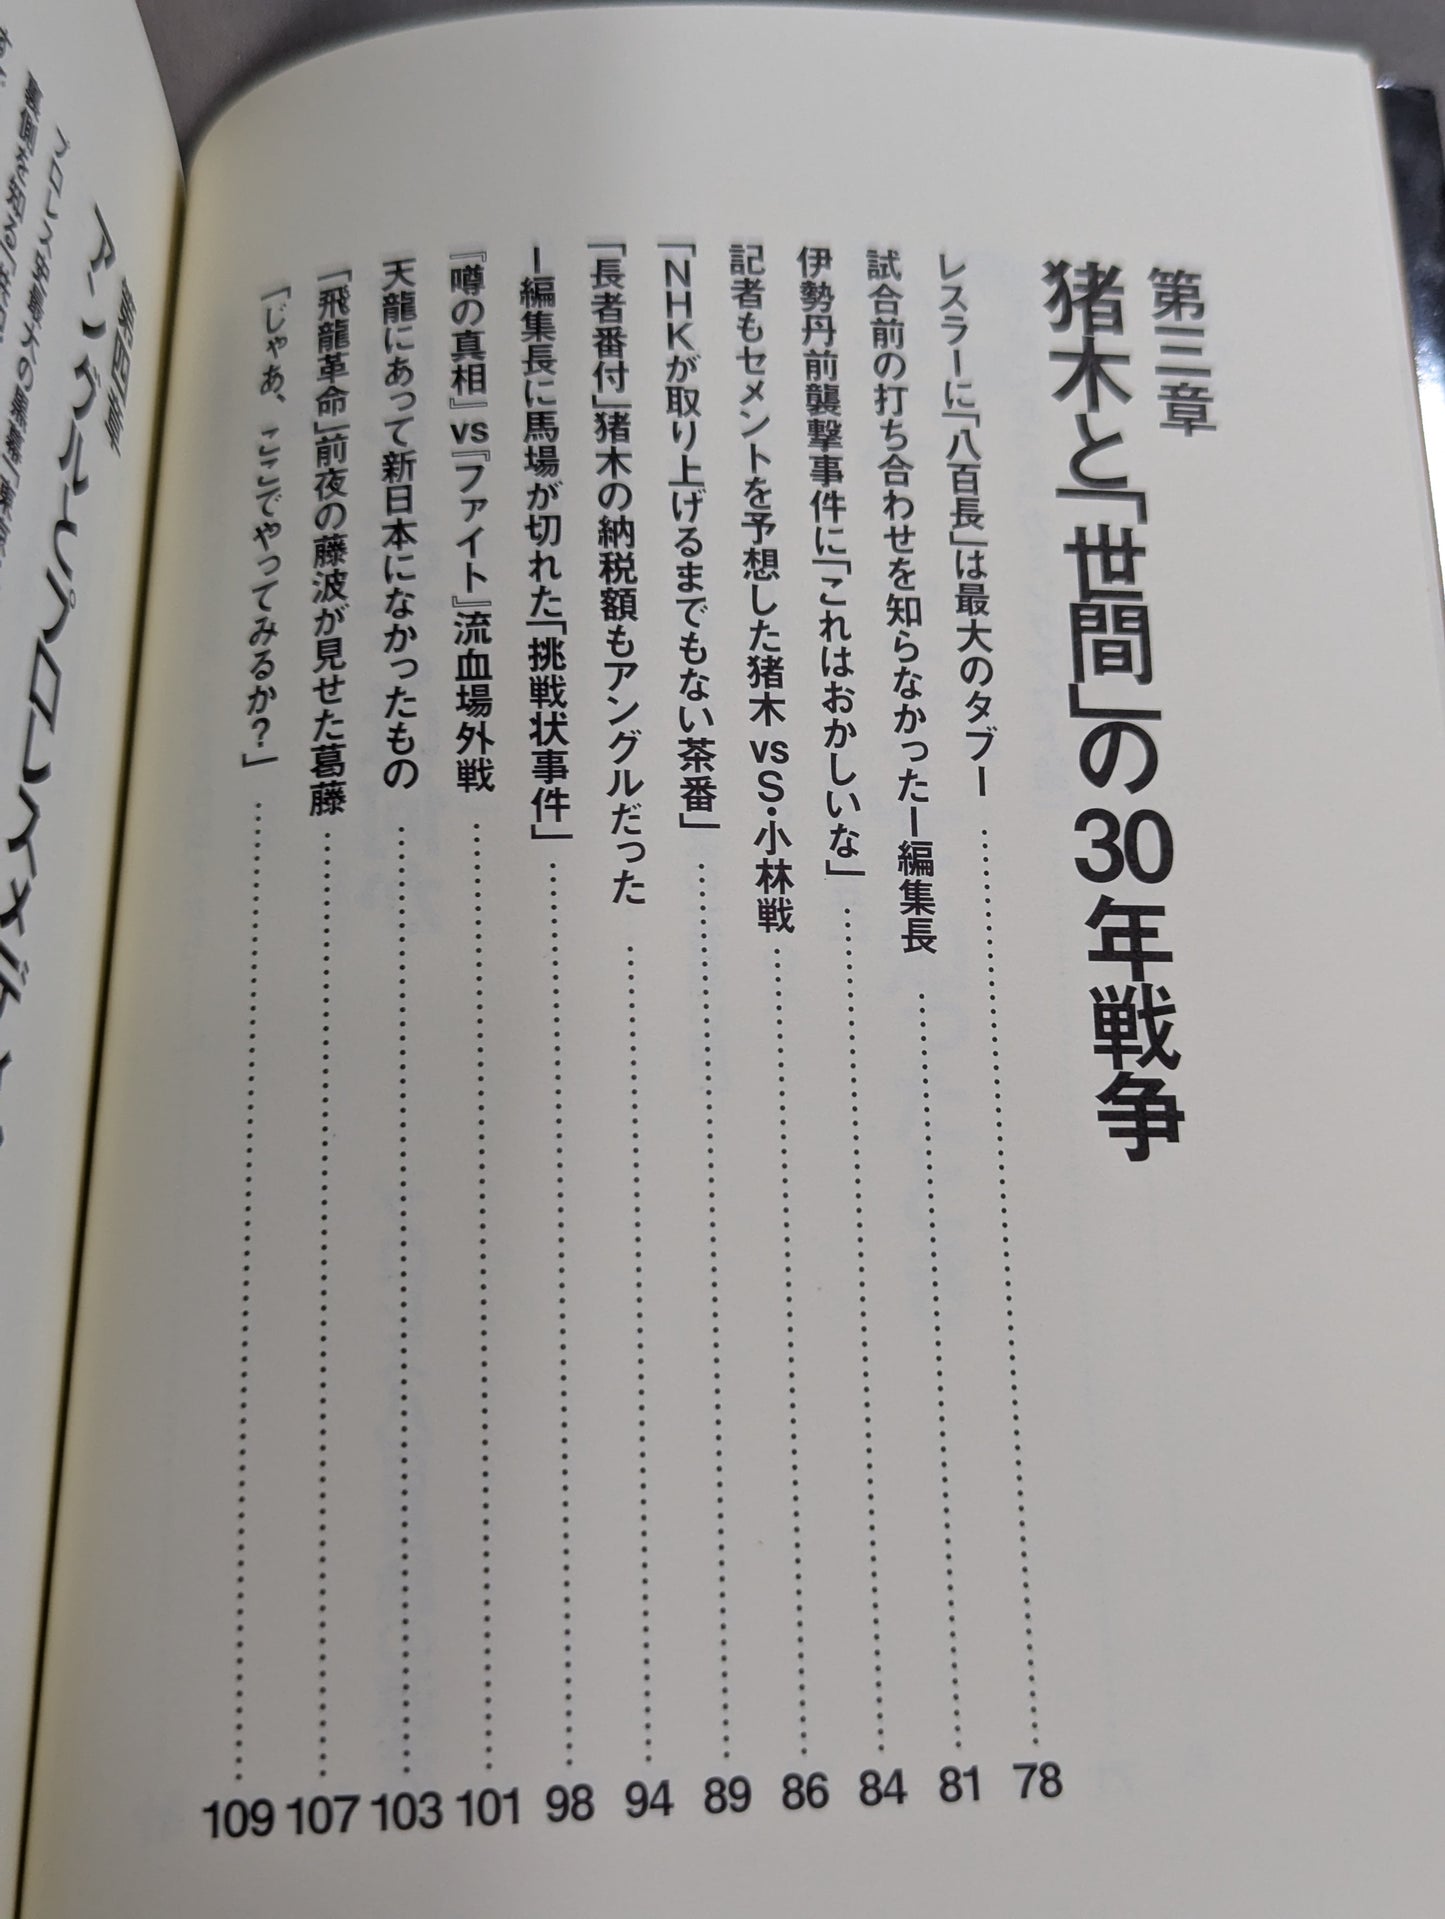 第三章
猪木と「世間」の30年戦争
レスラーに「八百長」は最大のタブー……78
試合前の打ち合わせを知らなかったI編集長……81
伊勢丹前襲撃事件に「これはおかしいな」……84
記者もセメントを予想した猪木vsS・小林戦……86
「NHKが取り上げるまでもない茶番」……89
「長者番付」猪木の納税額もアングルだった……94
I編集長に馬場が切れた「挑戦状事件」……98
『噂の真相』vs『ファイト』流血場外戦……101
天龍にあって新日本になかったもの……103
「飛龍革命」前夜の藤波が見せた葛藤……107
「じゃあ、ここでやってみるか？」……109
第四章